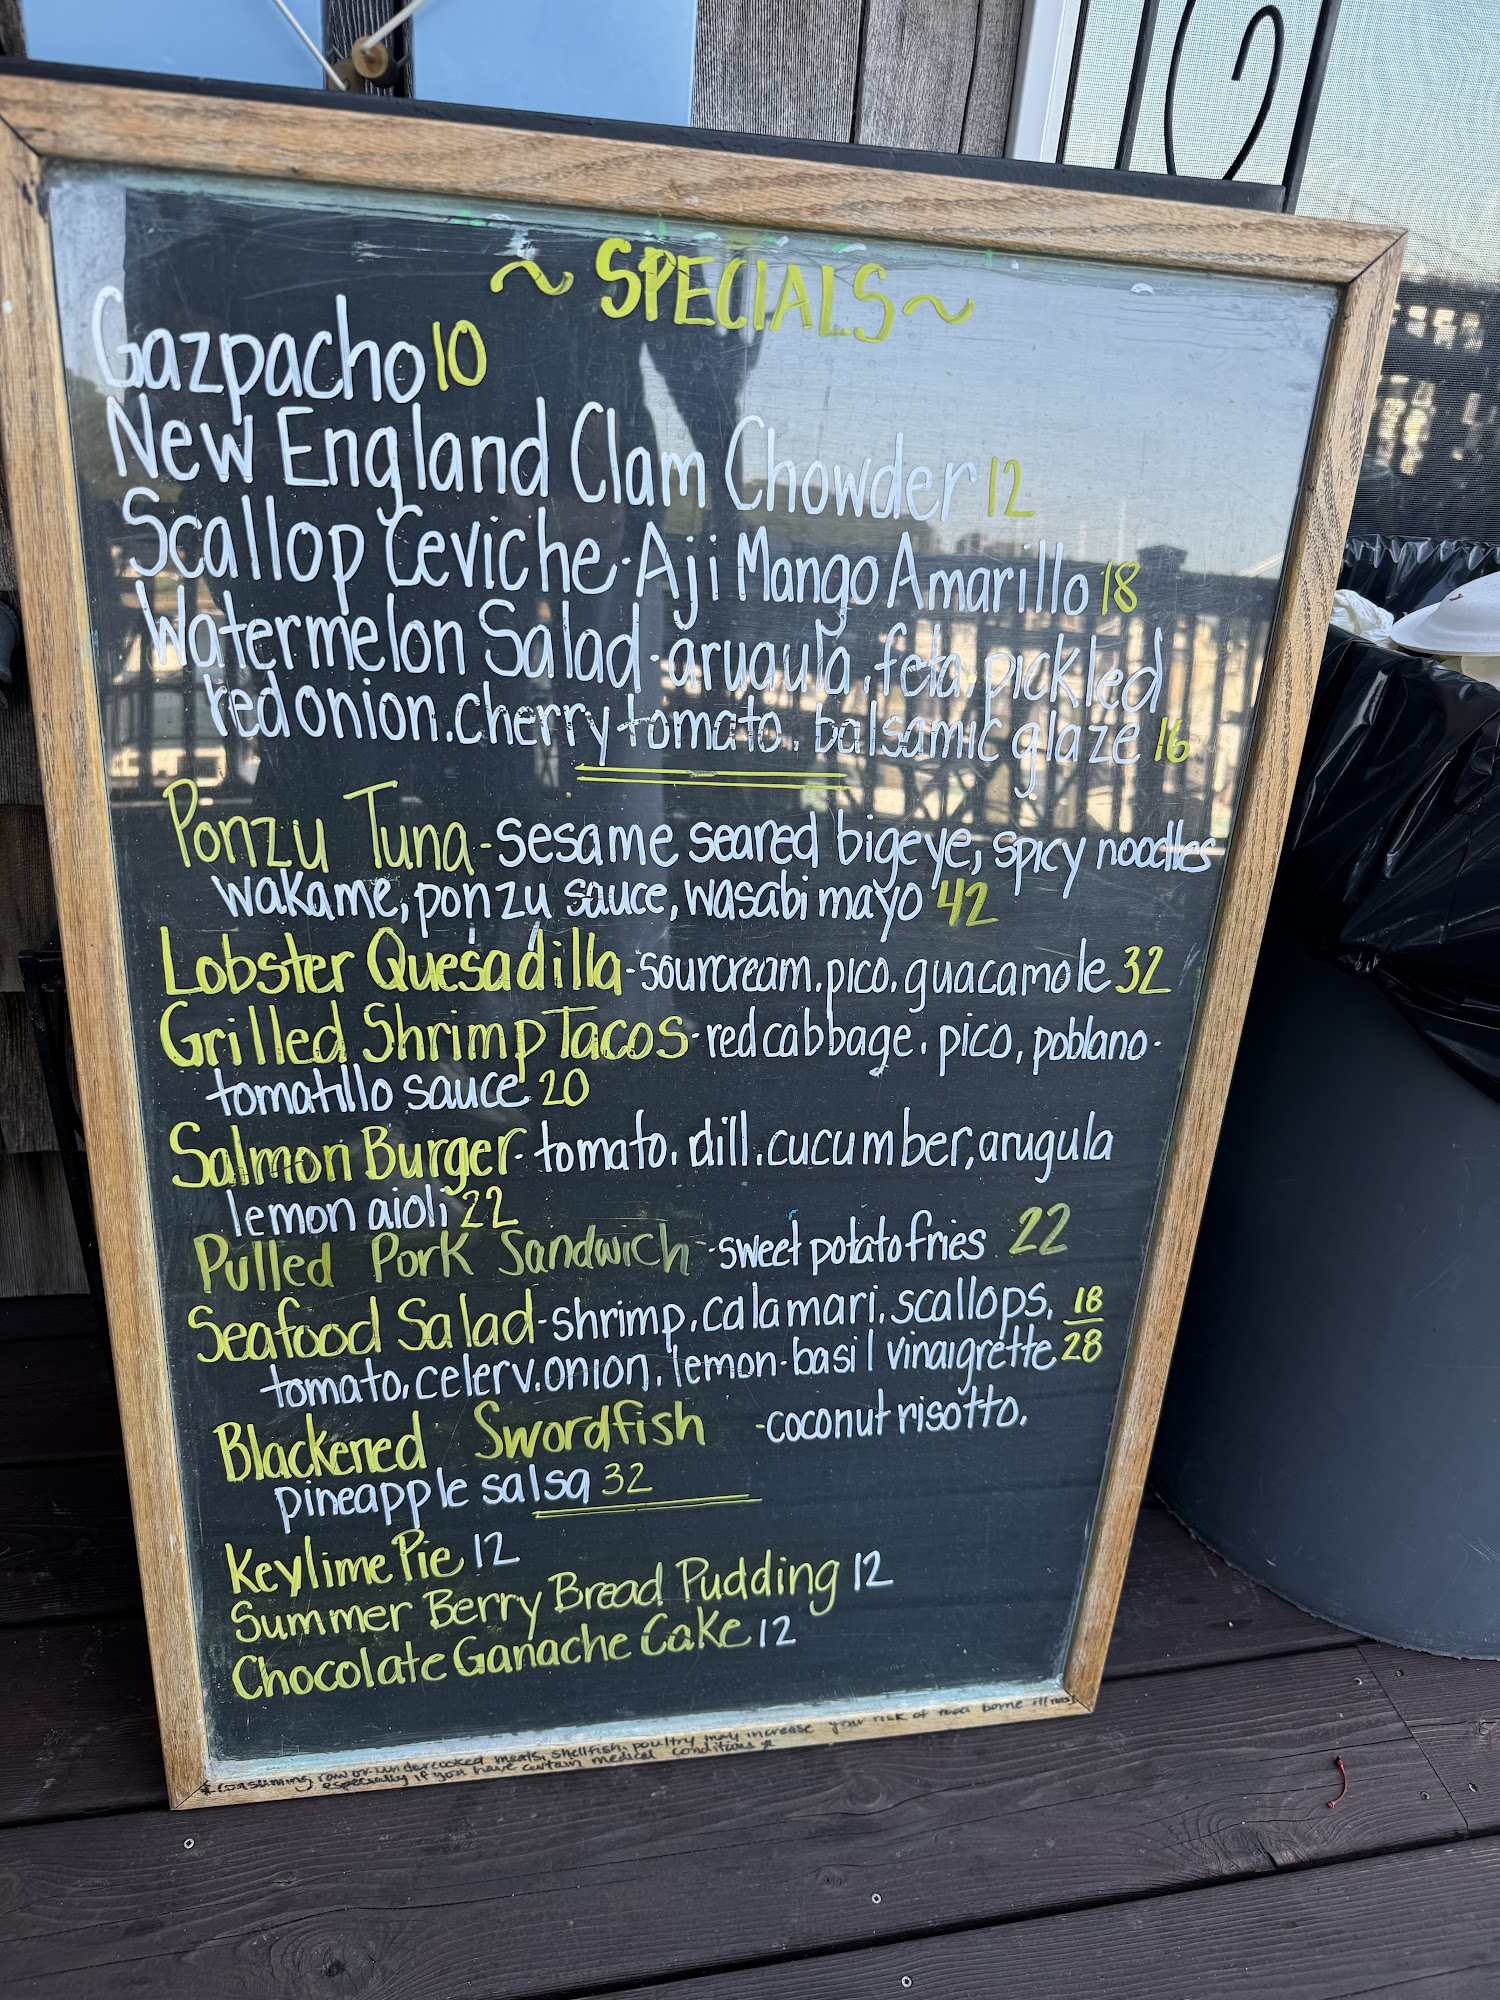 ~ SPECIALS ~
Gazpacho 10
New England Clam Chowder 12
Scallop Ceviche - Aji Mango Amarillo 18
Watermelon Salad - arugula, feta, pickled
red onion, cherry tomato, balsamic glaze 16
Ponzu Tuna - sesame seared bigeye, spicy noodles
wakame, ponzu sauce, wasabi mayo 42
Lobster Quesadilla - sourcream, pico, guacamole 32
Grilled Shrimp Tacos - red cabbage, pico, poblano-
tomatillo sauce 20
Salmon Burger - tomato, dill, cucumber, arugula
lemon aioli 22
Pulled Pork Sandwich - sweet potato fries 22
Seafood Salad - shrimp, calamari, scallops, 18
tomato, celery, onion, lemon-basil vinaigrette 28
Blackened Swordfish - coconut risotto,
pineapple salsa 32
Keylime Pie 12
Summer Berry Bread Pudding 12
Chocolate Ganache Cake 12
*consuming raw or undercooked meats, shellfish, poultry may increase your risk of food borne illness
especially if you have certain medical conditions *